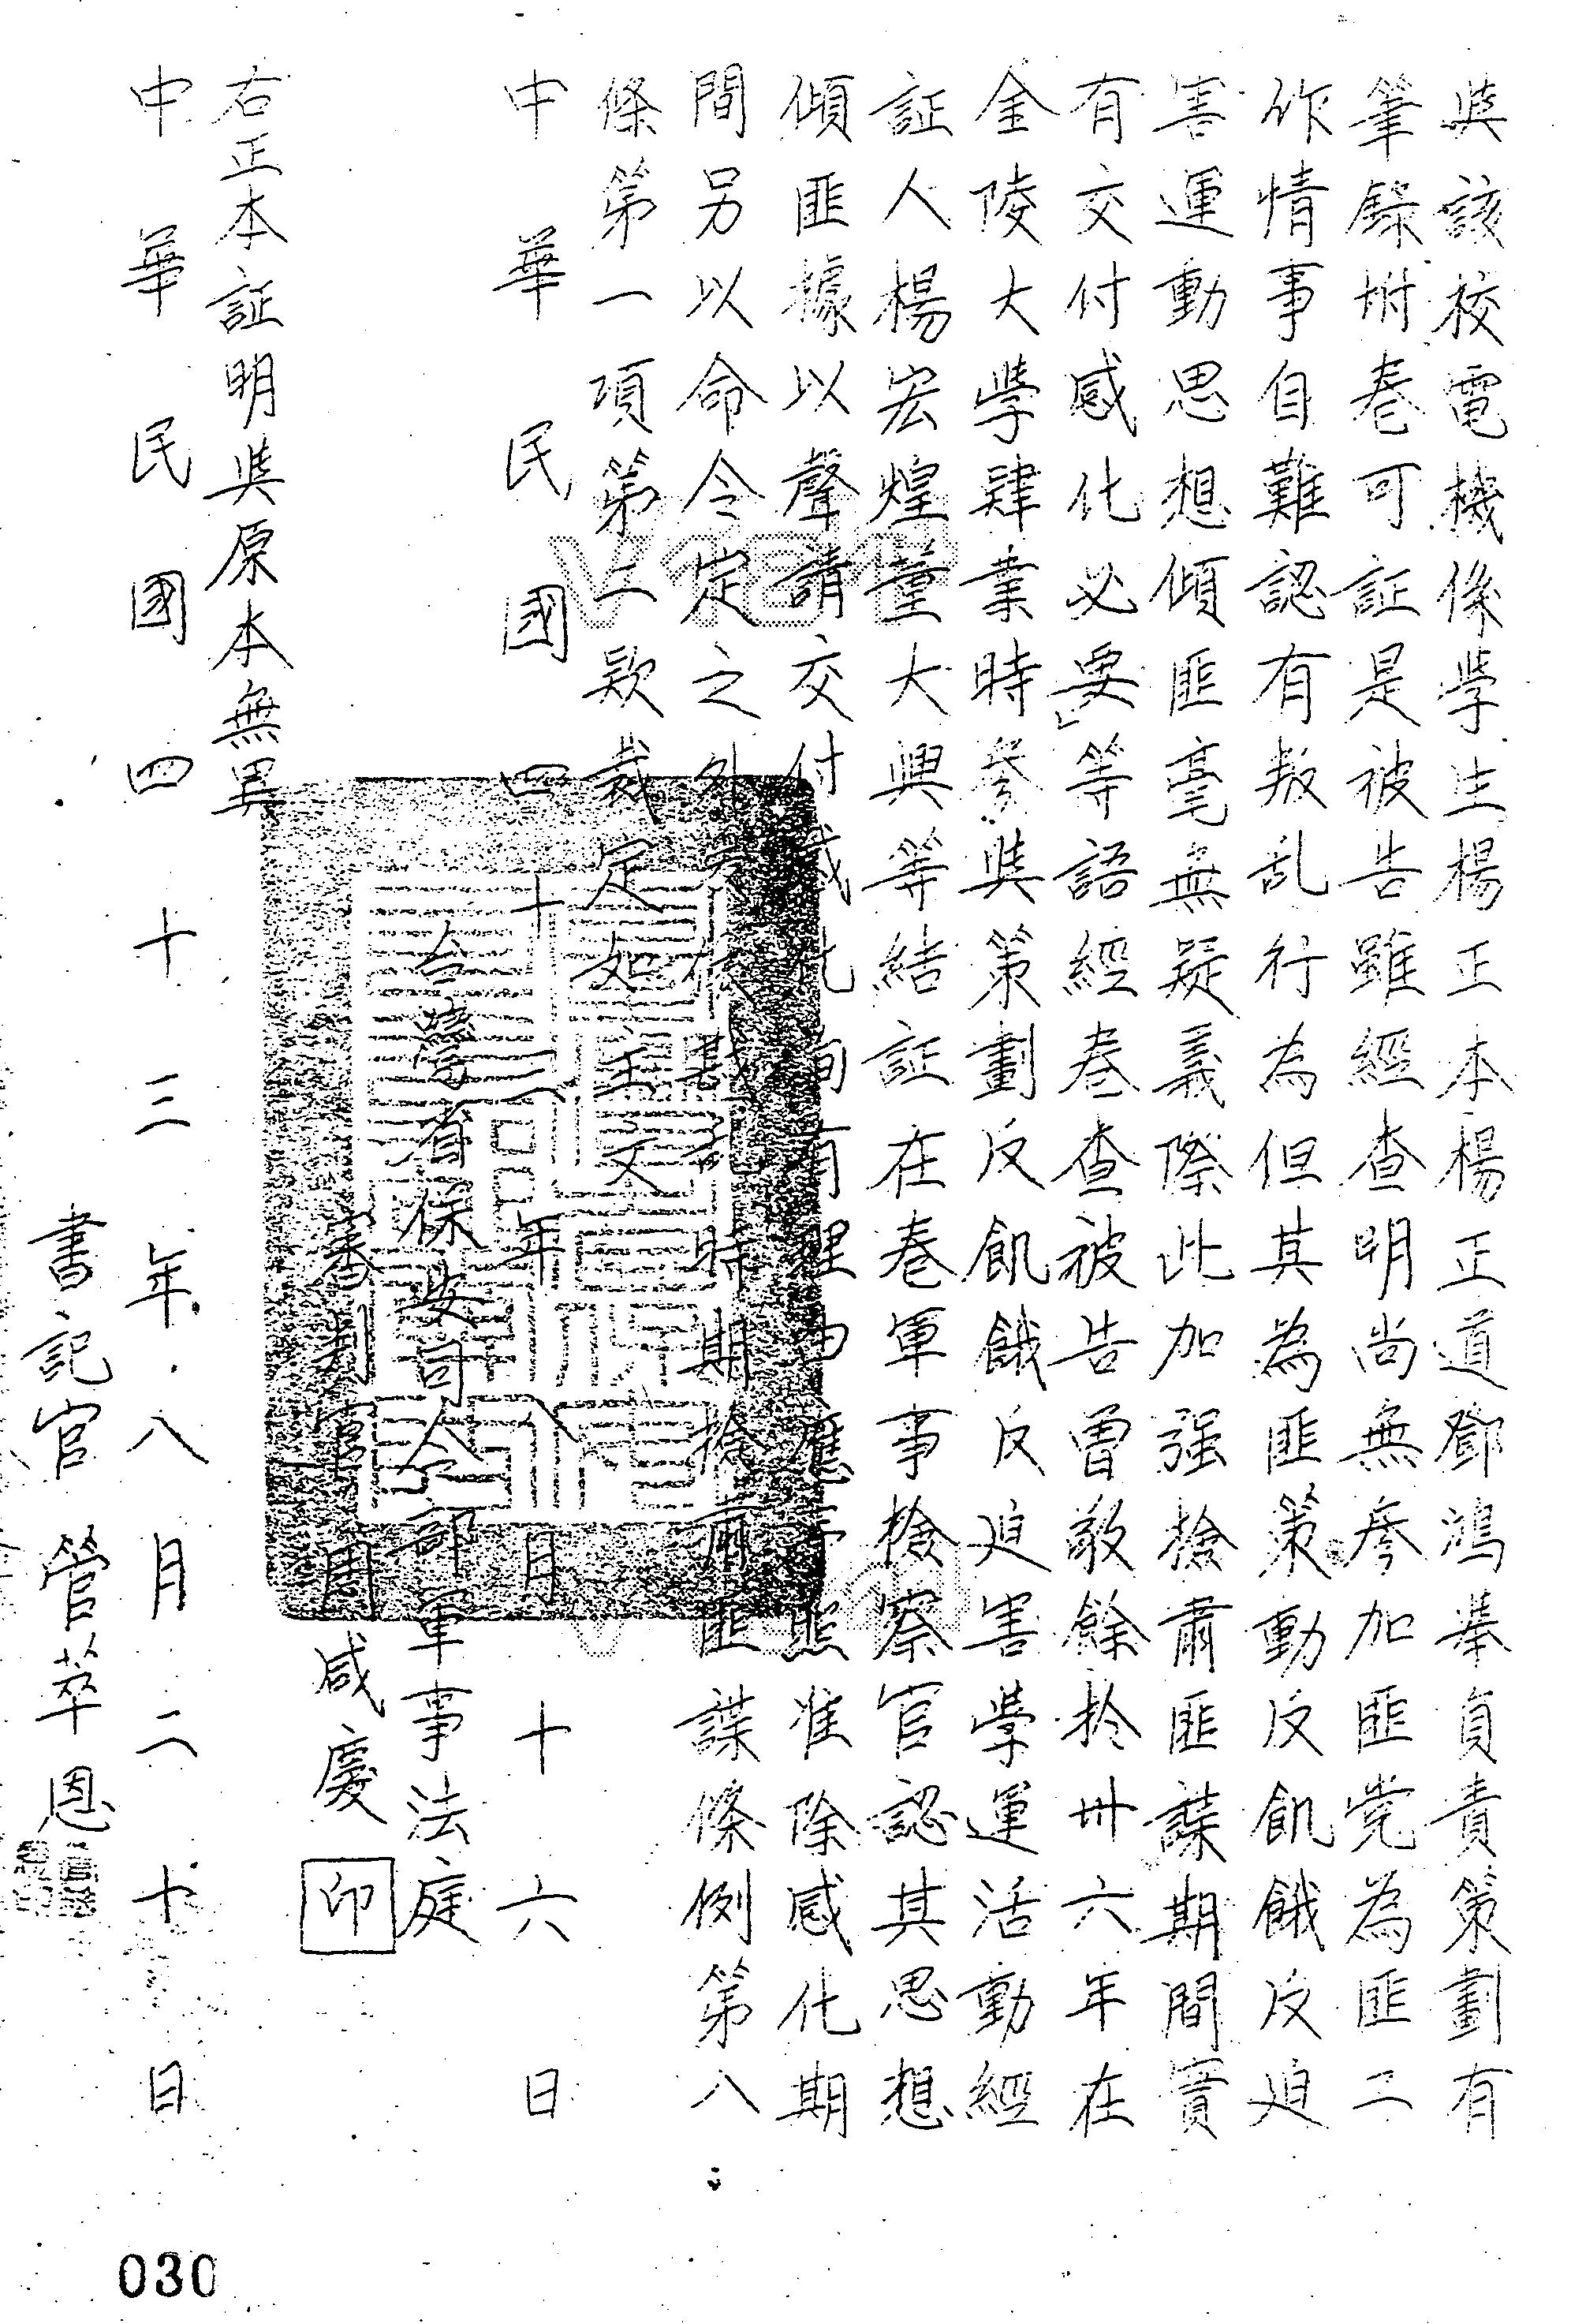 與該校電機係學生楊正本楊正道鄧鴻舉負責策劃有
筆錄坿卷可証是被告雖經查明尚無參加匪党為匪工
作情事自難認有叛乱行為但其為匪策動反飢餓反迫
害運動思想傾匪毫無疑義際此加强檢肅匪諜期間實
有交付感化必要」等語經卷查被告曾敬餘於卅六年在
金陵大學肄業時參與策劃反飢餓反迫害學運活動經
証人楊宏煌董大興等結証在卷軍事檢察官認其思想
傾匪據以聲請交付感化洵有理由應予照准除感化期
間另以命令定之外爰依戡乱時期檢肅匪諜條例第八
條第一項第二欵裁定如主文
中華民國四十三年八月十六日
台灣省保安司令部軍事法庭
審判官周咸慶
印
右正本証明與原本無異
中華民國四十三年八月二十日
書記官管萃恩
030